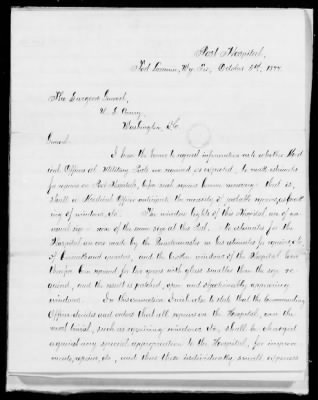 Post Hospital,
Fort Laramie, Wy. Ter., October 2nd, 1877
The Surgeon General,
U. S. Army,
Washington, D.C.
General:
I have the honor to request information as to whether Med-
ical Officers at Military Posts are required or expected, to make estimates
for repairs on Post Hospitals, before such repairs become necessary: that is,
shall a Medical Officer anticipate the necessity of probable repairs, as break
ing of windows, &c. The window lights of this Hospital are of an
unusual size - none of the same size at this Post. No estimates for the
Hospital are ever made by the Quartermaster in his estimates for repairs, &c.
of barracks and quarters, and the broken windows of the Hospital have
therefore been repaired for two years with glass smaller than the size re
quired, and the result is patched, open and unsightly appearing
windows. In this connection I wish also to state that the Commanding
Officer decides and orders that all repairs on the Hospital, even the
most trivial, such as repairing windows &c., shall be charged
against any special appropriation to the Hospital, for improve
ments, repairs, &c., and thus these individually small expenses